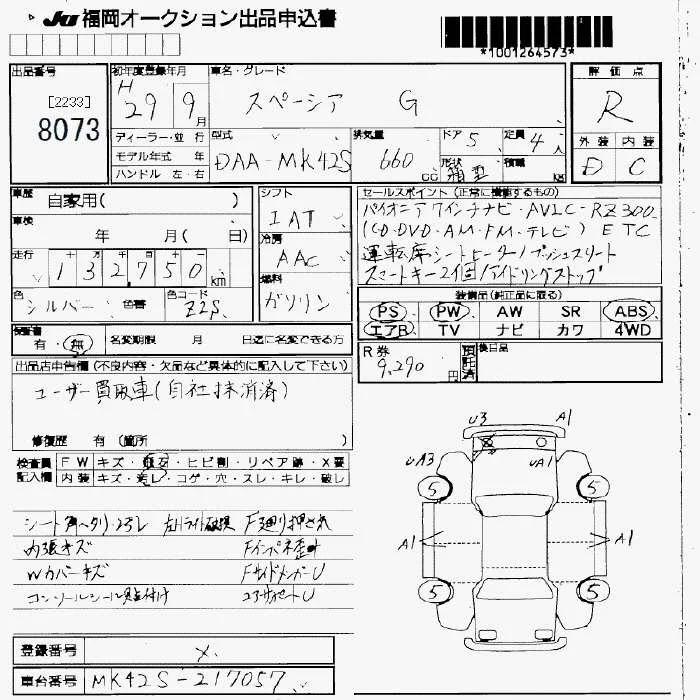 JU 福岡オークション出品申込書
*1001264573*
出品番号 [2233] 8073
初年度登録年月 H 29 9月
車名・グレード スペーシア G
評価点 R
外装 内装
D C
ディーラー・並行
モデル年式 年
ハンドル 左・右
型式 DAA-MK42S
排気量 660 CC
ドア 5 定員 4人
形状 箱型 積載 kg
車歴 自家用( )
車検 年 月( 日)
走行 十万千百十 132,750km
色 シルバー 色番 色コード Z2S
シフト IAT
冷房 AAC
燃料 ガソリン
セールスポイント(正常に機能するもの)
パイオニア7インチナビ・AVIC-RZ300
(CD・DVD・AM・FM・テレビ) ETC
運転席シートヒーター/プッシュスタート
スマートキー2個/アイドリングストップ
装備品(純正品に限る)
PS PW AW SR ABS
エアB TV ナビ カワ 4WD
保証書 有・無 名変期限 月 日迄に名変できる方
R券 9,290円 預託済 後日品
出品店申告欄(不良内容・欠品など具体的に記入して下さい)
ユーザー買取車(自社抹消済)
修復歴 有 (箇所 )
検査員記入欄 FW キズ・飛石・ヒビ割・リペア跡・X要
内装 キズ・汚レ・コゲ・穴・スレ・キレ・破レ
シート 汚レ 左ライト破損 F廻り押され
内張キズ Fインパネ歪み
Wカバーキズ FサイドメンバーU
コンソール
U3 A1
UA3 UA1
5 5
A1 A1
5 5
登録番号 X
車台番号 MK42S-217057